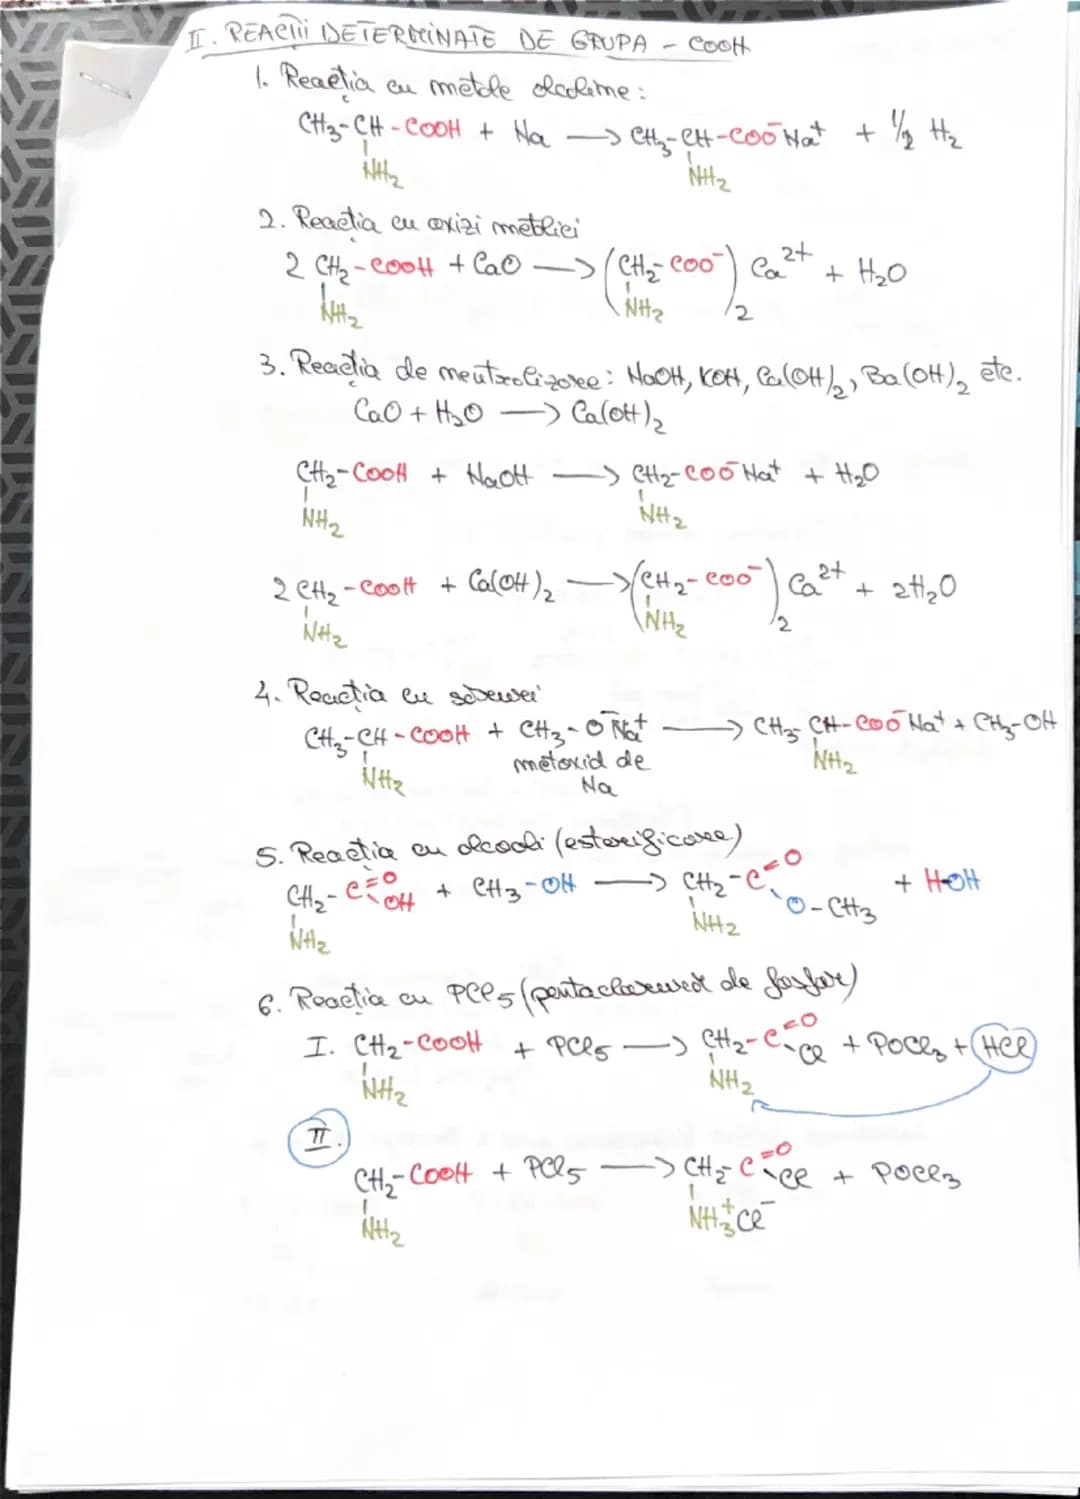 II. REACȚII DETERMINATE DE GRUPA - COOH
1. Reacția cu metale alcaline:
CH3-CH-COOH + Na ⟶ CH3-CH-COO⁻Na⁺ + 1/2 H2
NH2 NH2
2. Reacția cu oxizi metalici
2 CH2-COOH + CaO ⟶ (CH2-COO⁻)2 Ca²⁺ + H2O
NH2 NH2
3. Reacția de neutralizare: NaOH, KOH, Ca(OH)2, Ba(OH)2 etc.
CaO + H2O ⟶ Ca(OH)2
CH2-COOH + NaOH ⟶ CH2-COO⁻Na⁺ + H2O
NH2 NH2
2 CH2-COOH + Ca(OH)2 ⟶ (CH2-COO⁻)2 Ca²⁺ + 2H2O
NH2 NH2
4. Reacția cu săruri
CH3-CH-COOH + CH3-O⁻Na⁺ ⟶ CH3-CH-COO⁻Na⁺ + CH3-OH
NH2 metoxid de NH2
Na
5. Reacția cu alcooli (esterificare)
CH2-C=O OH + CH3-OH ⟶ CH2-C=O O-CH3 + HOH
NH2 NH2
6. Reacția cu PCl5 (pentaclorură de fosfor)
I. CH2-COOH + PCl5 ⟶ CH2-C=O Cl + POCl3 + HCl
NH2 NH2
II.
CH2-COOH + PCl5 ⟶ CH2-C=O Cl + POCl3
NH2 NH3⁺Cl⁻